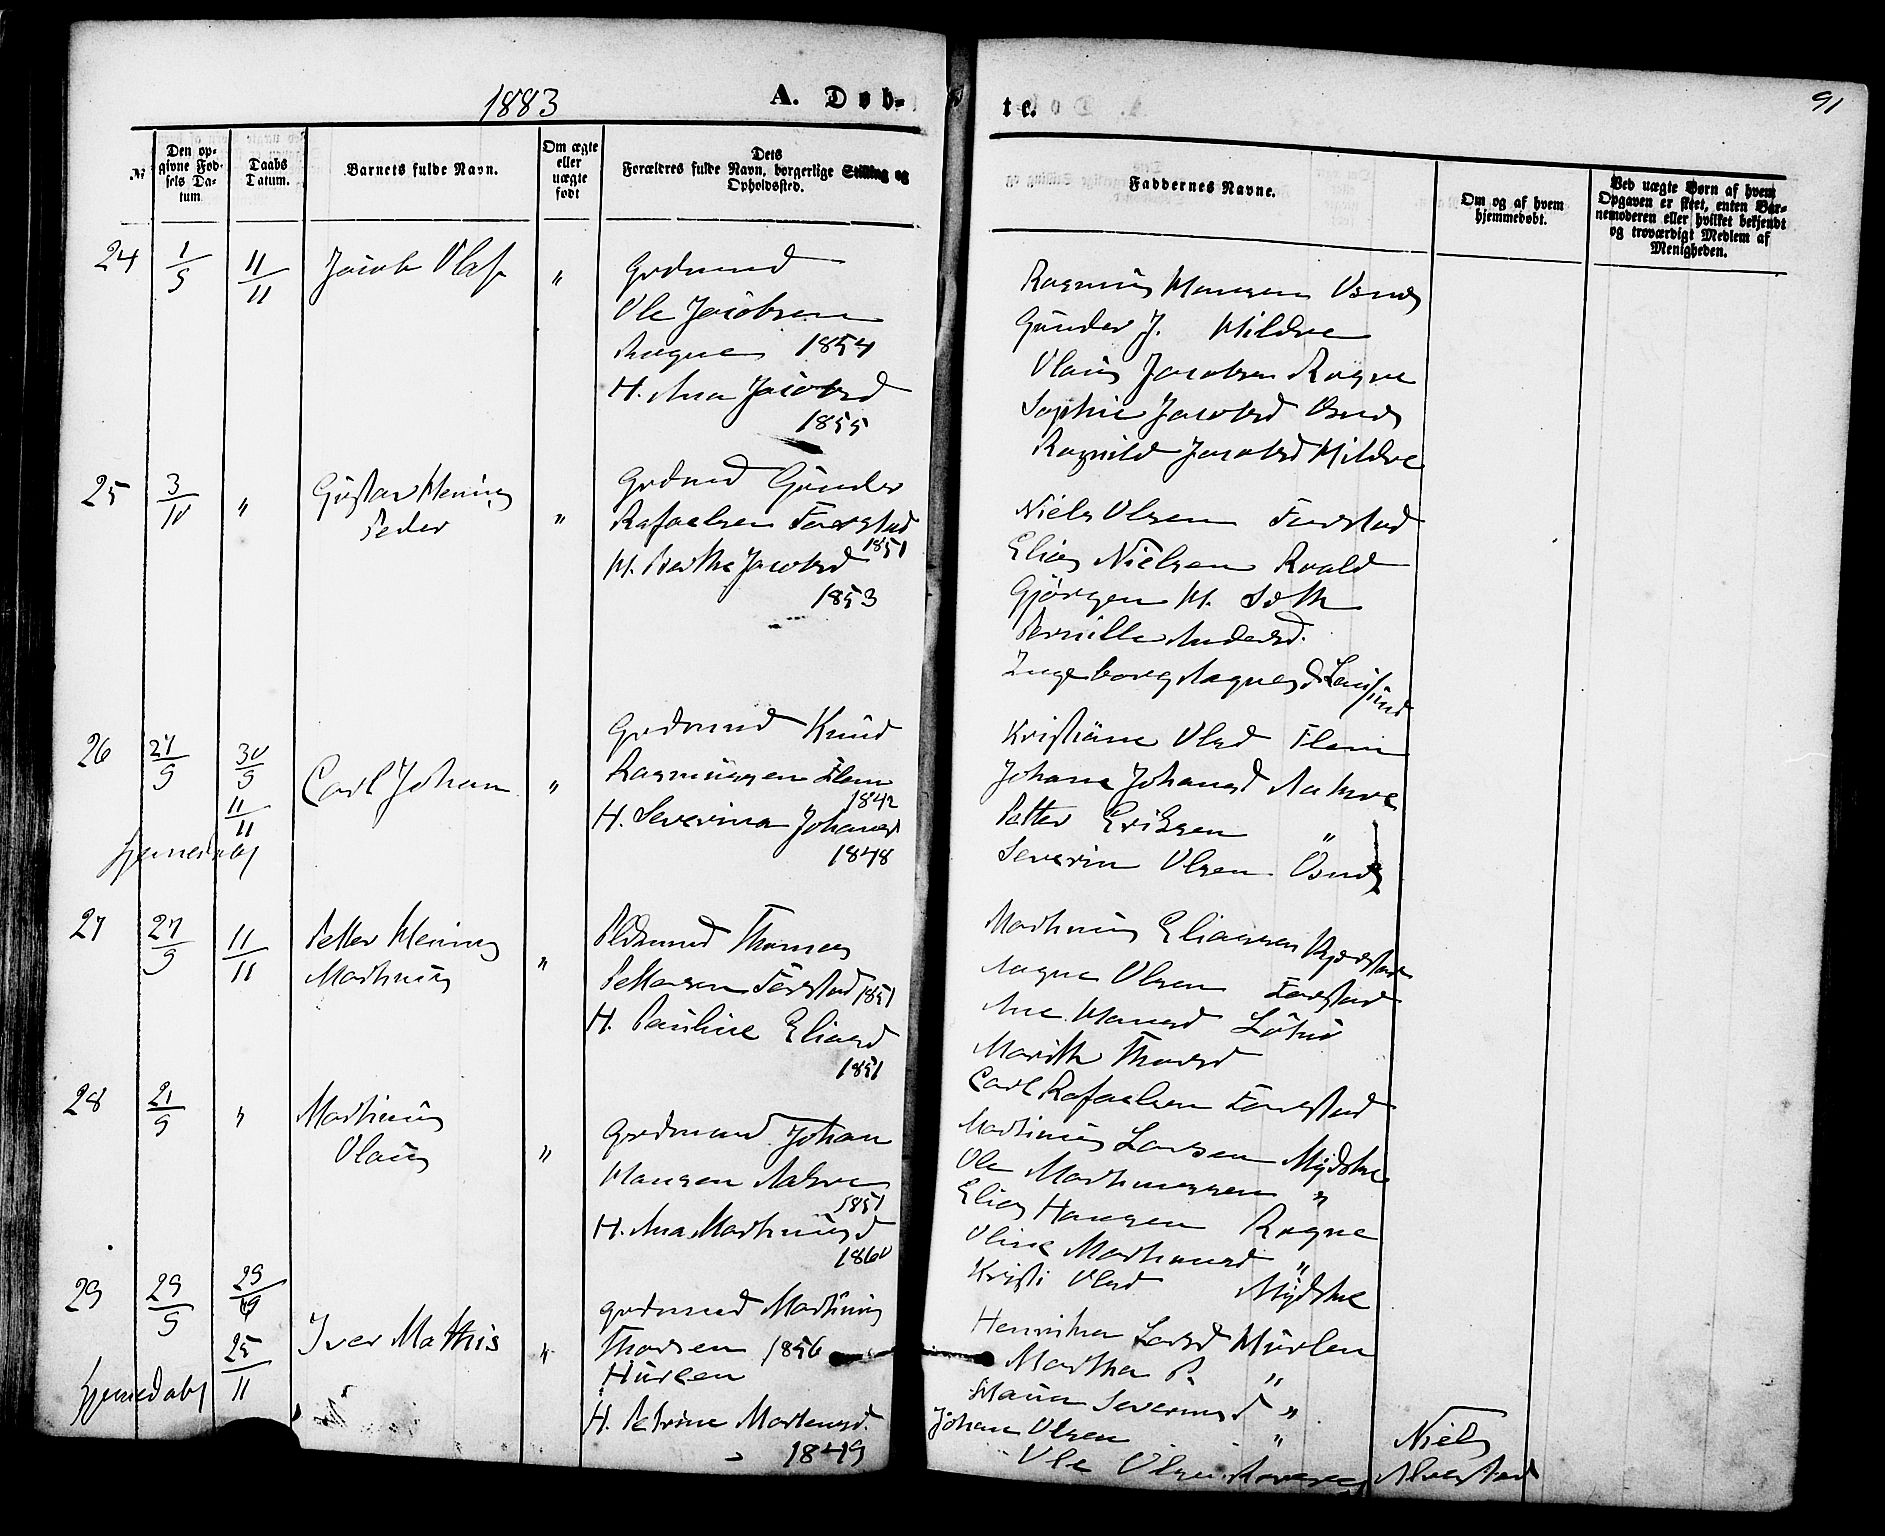 1883 A. Døb-
te.
91
№
Den op-
givne Fød-
sels Da-
tum
Daabs
Datum.
Barnets fulde Navn.
Om ægte
eller
uægte
født
Dets
Forældres fulde Navn, borgerlige Stilling og
Opholdssted.
Faddernes Navne.
Om og af hvem
hjemmedøbt.
Ved uægte Børn af hvem
Opgaven er skeet, enten Bar-
nemoderen eller hvilket bekjendt
og troværdigt Medlem af
Menigheden.
24 1/9 11/11 Jacob Olaf "
Grdmand
Ole Jacobsen
Rogne 1854
H. Ana Jacobsd
1855
Rasmus Hansen Osnes
Gunder J. Hildre
Olaus Jacobsen Rogne
Sophie Jacobsd Osnes
Ragnild Jacobsd Hildre
25 3/10 " Gustav Hening
Peder "
Grdmd Gunder
Rafaelsen Farstad
1851
H. Berthe Jacobsd
1853
Niels Olsen Farstad
Elias Nielsen Roald
Gjørgen H.
Pernille Andersd.
Ingeborg Aagnesd
26 27/9 30/9 Carl Johan "
11/11
hjemedøbt
Grdmand Knud
Rasmussen Flem
1842
H. Severina Johansd
1848
Kristiane Olsd Flem
Johane Johansd Aakre
Petter Eriksen "
Severin Olsen Osnes
27 27/9 11/11 Petter Hening
Martinus "
Pldsmand Thomas
Pettersen Farstad 1851
H. Pauline Eliasd
1851
Martinus Eliassen
Aagne Olsen Farstad
Ane Hansd
Marith Thorsd
Carl Rafaelsen Farstad
28 21/9 " Martinus
Olaus "
Grdmand Johan
Hansen Aakre
1851
H. Ana Martinusd
1860
Martinus Larsen Mydske
Ole Martinussen "
Elias Hansen Rogne
Oline Martinusd "
Kristi Olsd Mydske
29 29/9 29/9 Iver Mathis "
25/11
hjemedøbt
Grdmand Martinus
Thorsen 1856
Hurlen
H. Petrine Martinusd.
1849
Henrikka Larsd Hurlen
Martha P. "
Severinsd "
Johan Olsen "
Ole Olsen
Niels
Alvestad